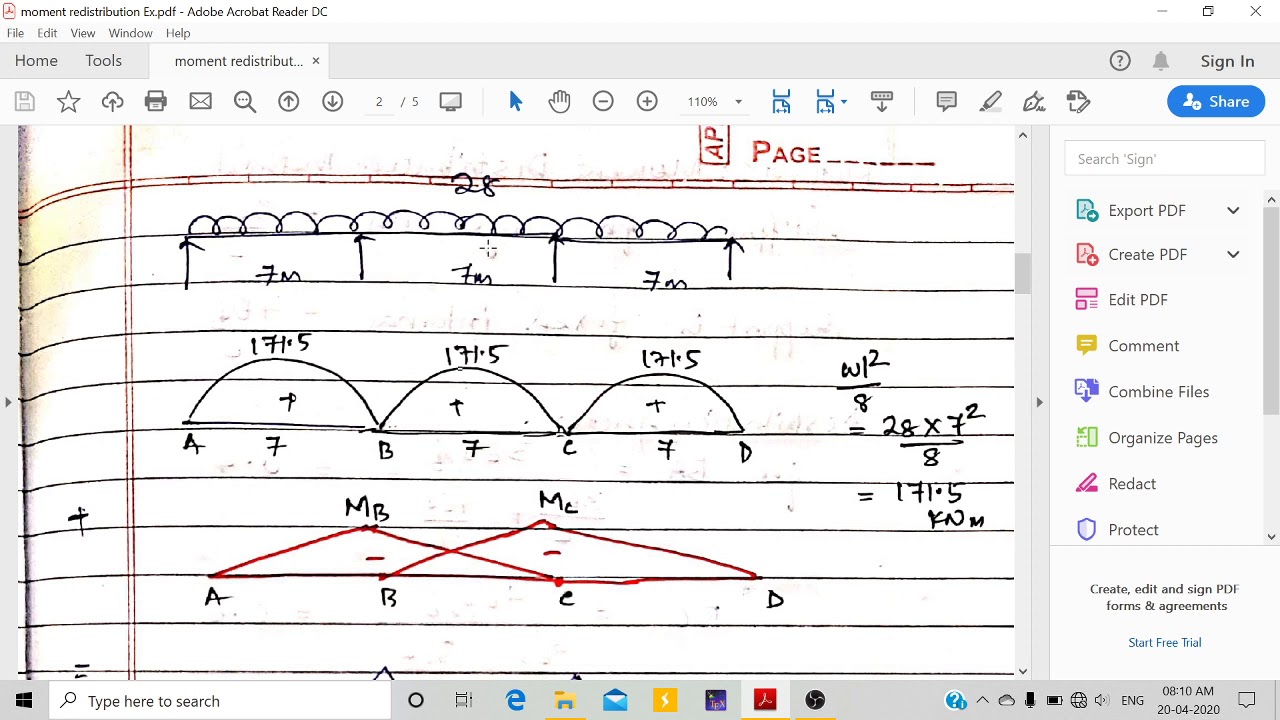 moment redistribution Ex.pdf - Adobe Acrobat Reader DC
File Edit View Window Help
Home Tools moment redistribut... ×
Sign In
2 / 5 110% Share
AP PAGE
28
7m 7m 7m
171.5 171.5 171.5
+ + +
A 7 B 7 C 7 D
wl²/8
= 28 × 7²/8
= 171.5
KNm
+
MB MC
- -
A B C D
=
Search 'Sign'
Export PDF
Create PDF
Edit PDF
Comment
Combine Files
Organize Pages
Redact
Protect
Create, edit and sign PDF
forms & agreements
Start Free Trial
Type here to search
TEX
ENG
08:10 AM
20-04-2020